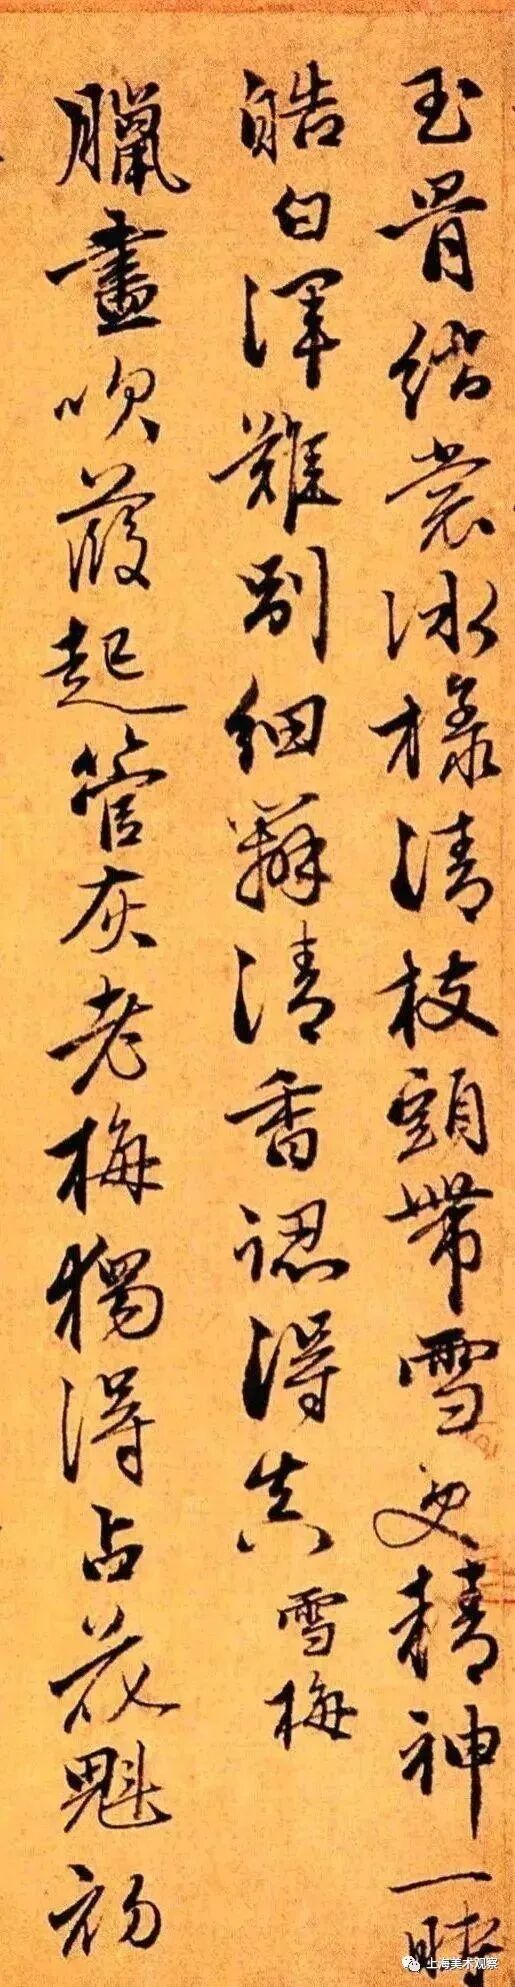 玉骨綃裳冰樣清枝頭帶雪更精神一時
皓白渾難別細辨清香認得真 雪梅
臘盡吹葭起管灰老梅獨得占花魁初
上海美术观察